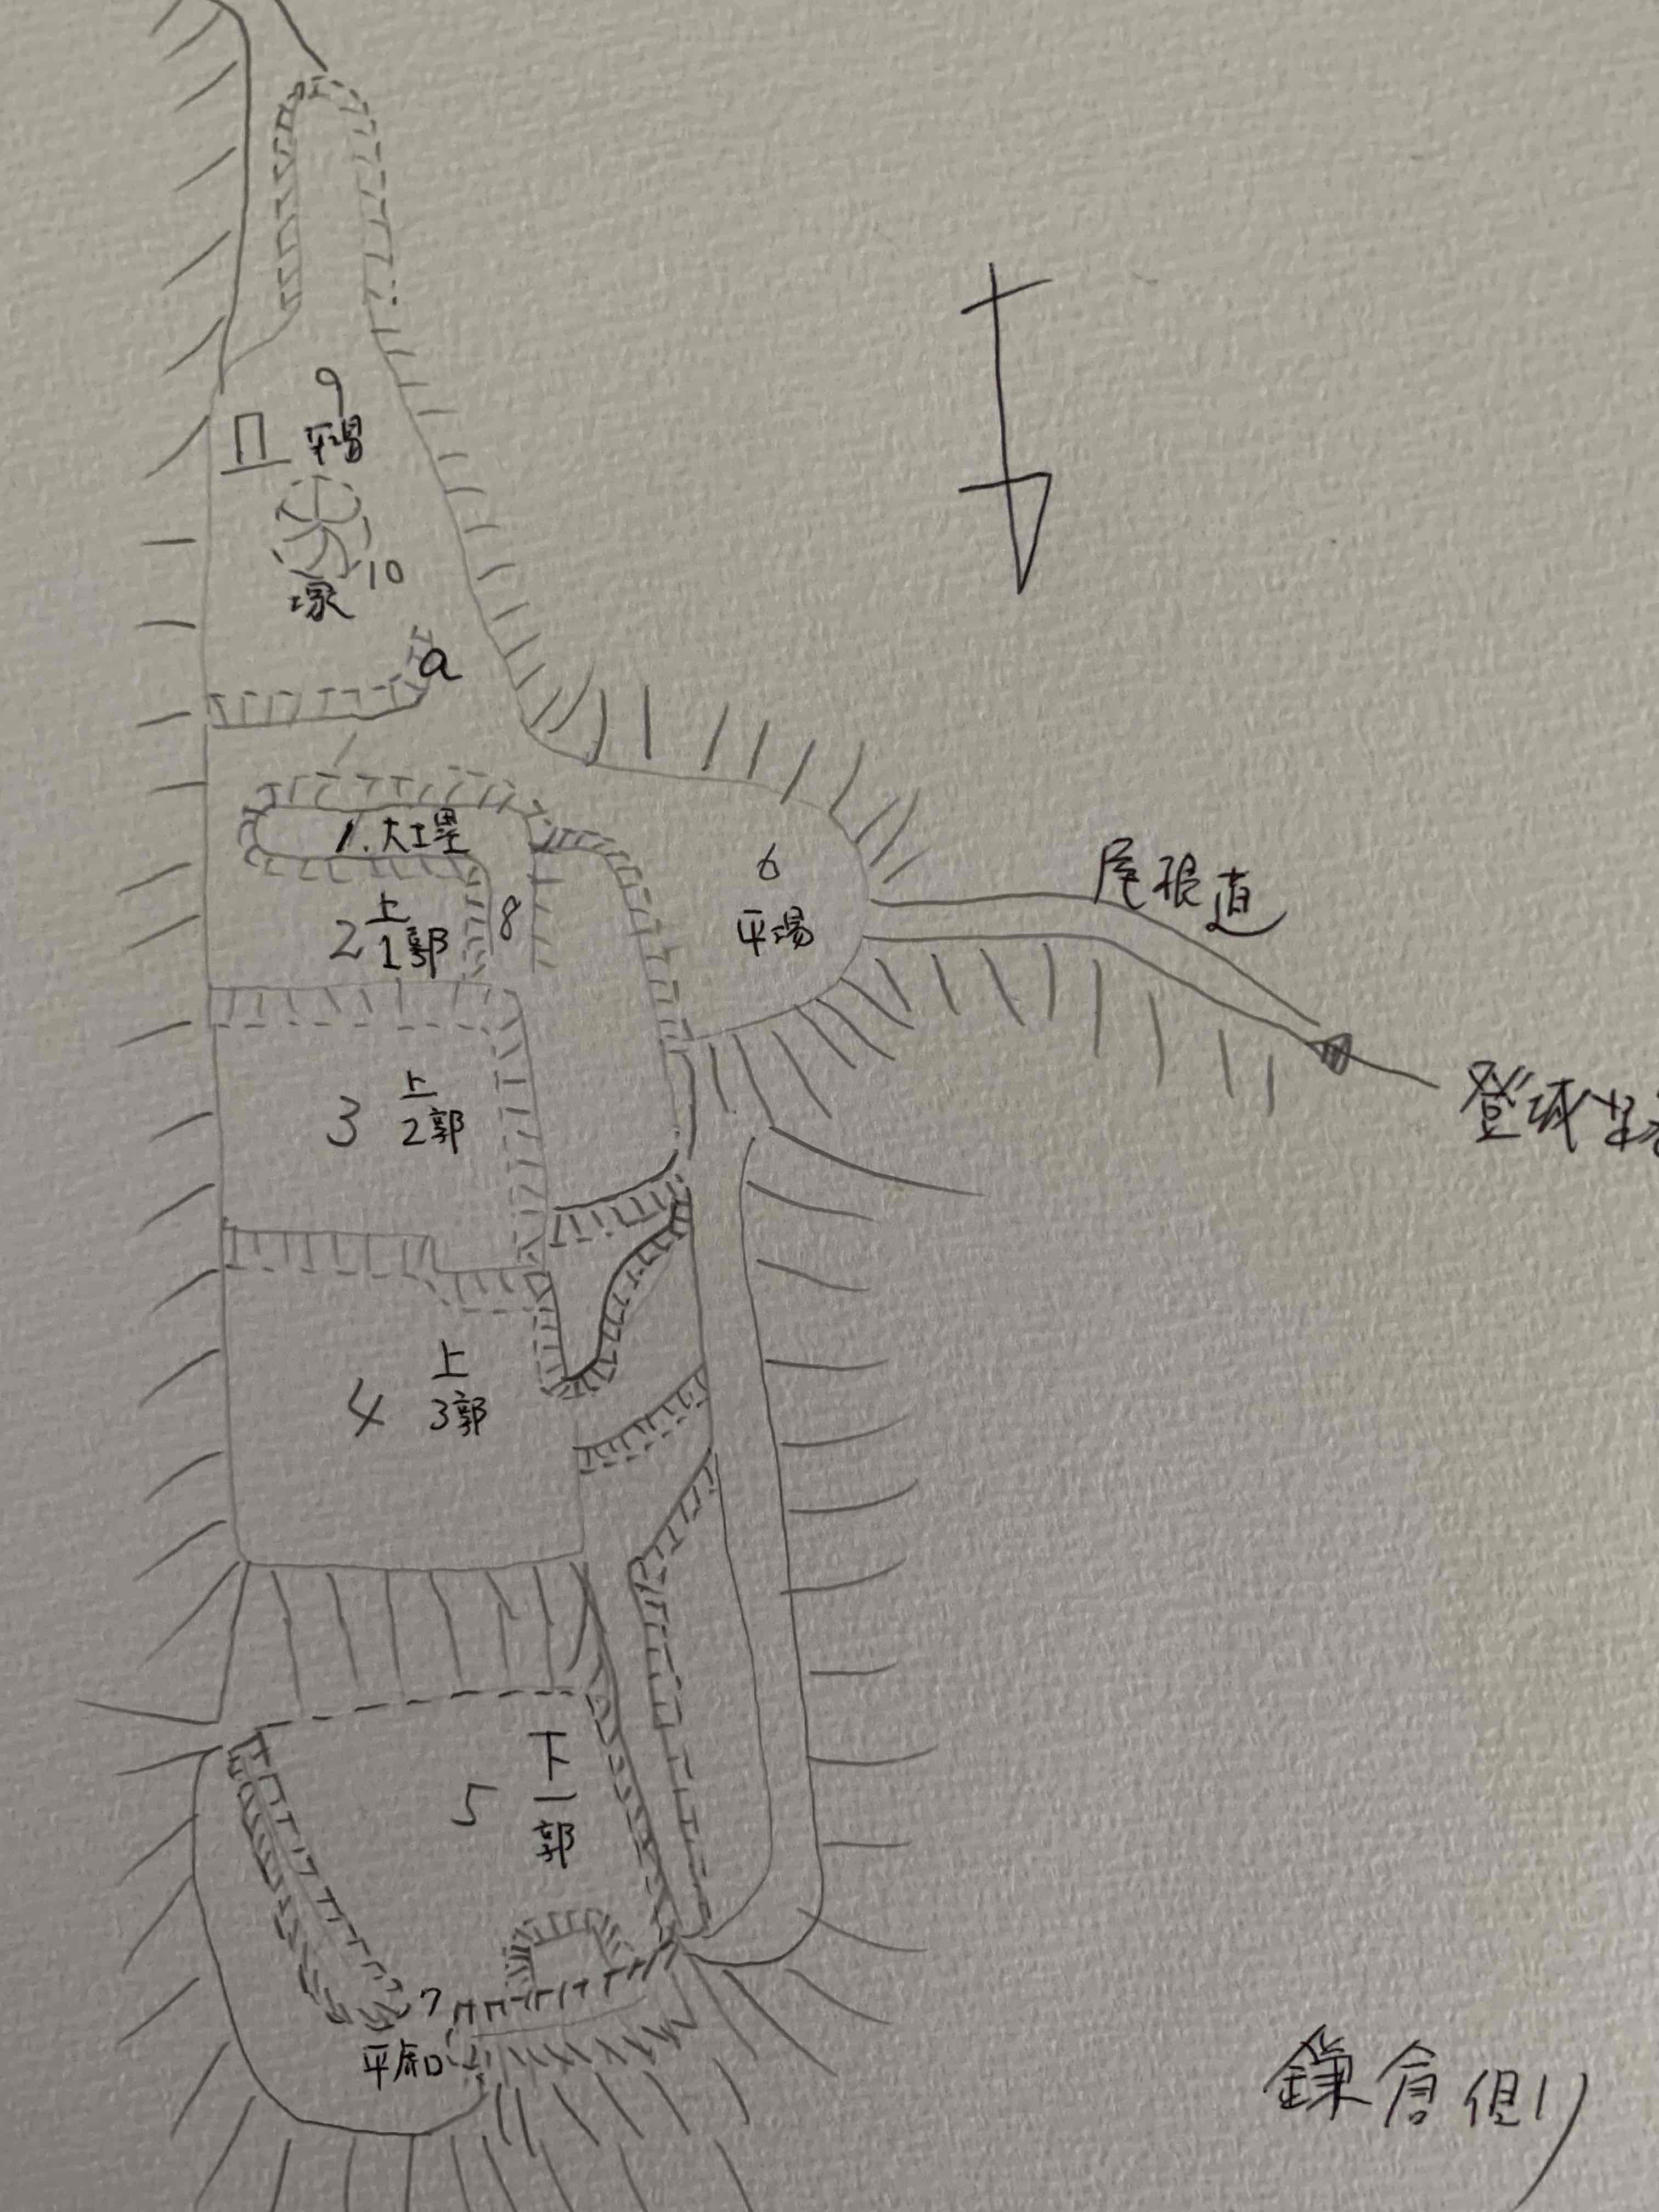 9
平場
10
塚
a
1. 大土塁
2 上
1郭
8
6
平場
尾根道
登城
3 上
2郭
4 上
3郭
5 下
一
郭
7
平虎口
鎌倉側